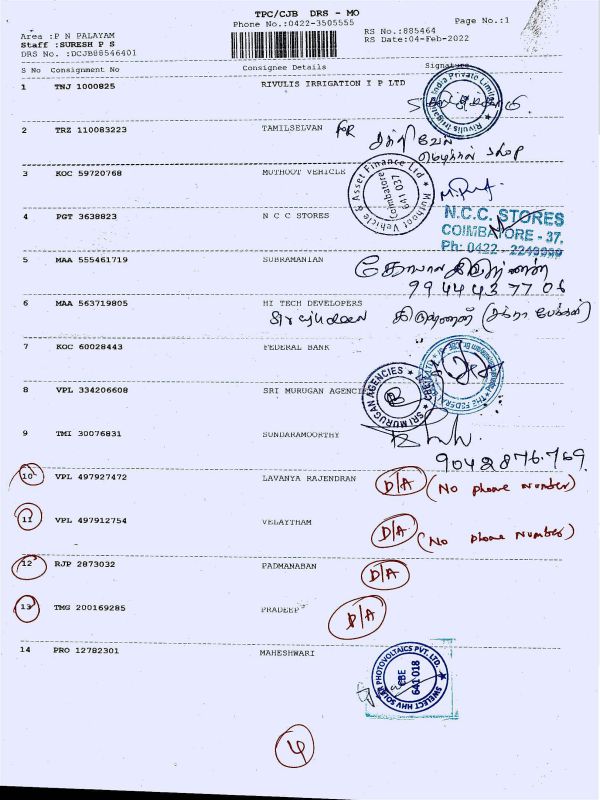 TPC/CJB DRS - MO
Phone No.:0422-3505555
Page No.:1
Area :P N PALAYAM
RS No.:885464
Staff :SURESH P S
RS Date:04-Feb-2022
DRS No. :DCJB88546401
S No Consignment No Consignee Details Signature
1 TNJ 1000825 RIVULIS IRRIGATION I P LTD
Rivulis Irrigation India Private Limited
2 TRZ 110083223 TAMILSELVAN FOR
3 KOC 59720768 MUTHOOT VEHICLE
Muthoot Vehicle & Asset Finance Ltd
Coimbatore
641 037
4 PGT 3638823 N C C STORES
N.C.C. STORES
COIMBATORE - 37.
Ph: 0422 - 2249999
5 MAA 555461719 SUBRAMANIAN
99444 37706
6 MAA 563719805 HI TECH DEVELOPERS
7 KOC 60028443 FEDERAL BANK
THE FEDERAL
8 VPL 334206608 SRI MURUGAN AGENCIES
SRI MURUGAN AGENCIES
9 TMI 30076831 SUNDARAMOORTHY
9042876769
10 VPL 497927472 LAVANYA RAJENDRAN D/A (No phone number)
11 VPL 497912754 VELAYTHAM D/A (No phone number)
12 RJP 2873032 PADMANABAN D/A
13 TMG 200169285 PRADEEP D/A
14 PRO 12782301 MAHESHWARI
SWELECT HHV SOLAR PHOTOVOLTAICS PVT. LTD.
CBE
641 018
4